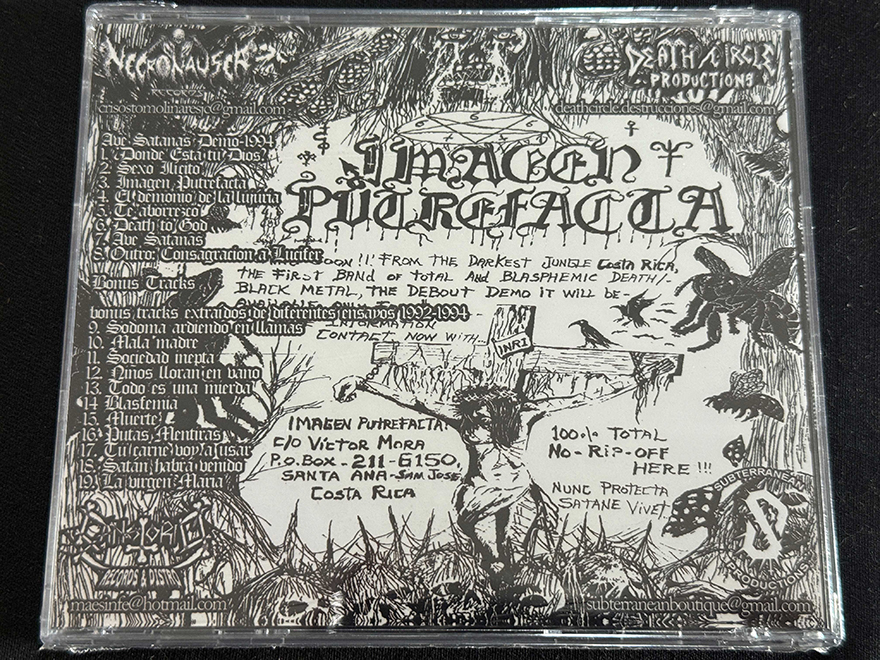 NECRONAUSEA
RECORDS
crisostomolinaresjc@gmail.com
DEATH CIRCLE
PRODUCTIONS
deathcircle.destrucciones@gmail.com
Ave Satanas Demo-1994
1. ¿Donde Esta tu Dios?
2. Sexo Ilicito
3. Imagen Putrefacta
4. El demonio de la lujuria
5. Te aborrezco
6. Death to God
7. Ave Satanas
8. Outro: Consagracion a Lucifer
Bonus Tracks
bonus tracks extraidos de diferentes ensayos 1992-1994
9. Sodoma ardiendo en llamas
10. Mala madre
11. Sociedad inepta
12. Niños lloran en vano
13. Todo es una mierda
14 Blasfemia
15. Muerte
16. Putas Mentiras
17. Tu carne voy a usar
18. Satan habra venido
19. La virgen Maria
IMAGEN
PUTREFACTA
SOON!!! FROM THE DARKEST JUNGLE COSTA RICA,
THE FIRST BAND OF TOTAL AND BLASPHEMIC DEATH/-
BLACK METAL, THE DEBOUT DEMO IT WILL BE-
INFORMATION
CONTACT NOW WITH...
INRI
IMAGEN PUTREFACTA
C/O VÍCTOR MORA
P.O. BOX - 211-6150,
SANTA ANA - SAN JOSE
COSTA RICA
100% TOTAL
NO-RIP-OFF
HERE!!!
NUNC PROTECTA
SATANE VIVET
RECORDS & DISTRO
maesinfe@hotmail.com
SUBTERRANEAN
PRODUCTIONS
subterraneanboutique@gmail.com